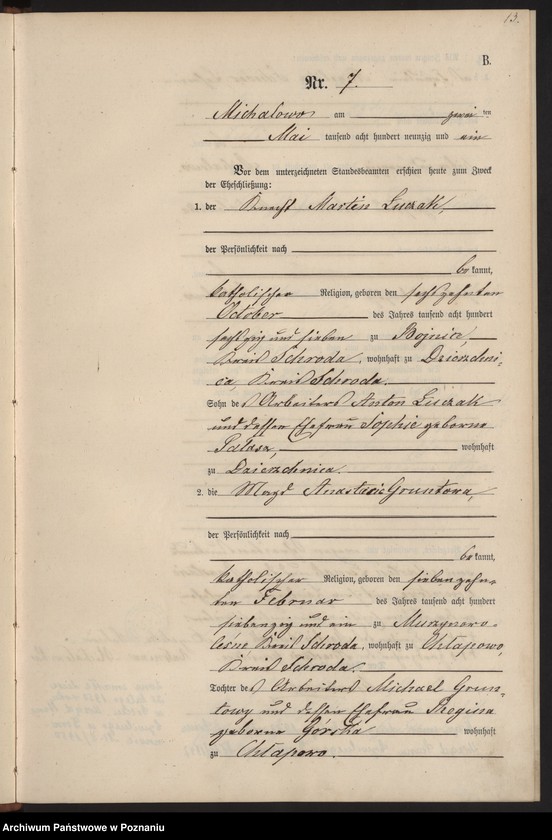 13.
B.
Nr. 7.
Michalowo am zwei ten
Mai tausend acht hundert neunzig und ein
Vor dem unterzeichneten Standesbeamten erschien heute zum Zweck
der Eheschließung:
1. der Knecht Martin Luczak,
der Persönlichkeit nach
be kannt,
katholischer Religion, geboren den sechszehnten
October des Jahres tausend acht hundert
sechszig und sieben zu Bojnice,
Kreis Schroda, wohnhaft zu Dzierzchni-
ca, Kreis Schroda.
Sohn des Arbeiters Anton Luczak
und dessen Ehefrau Sophie geborne
Palasz, wohnhaft
zu Dzierzchnica.
2. die Magd Anastasie Gruntowa,
der Persönlichkeit nach
be kannt,
katholischer Religion, geboren den siebenzehn-
ten Februar des Jahres tausend acht hundert
siebenzig und ein zu Murzynowo-
leśne Kreis Schroda, wohnhaft zu Chłapowo,
Kreis Schroda.
Tochter des Arbeiters Michael Grun-
towy und dessen Ehefrau Regina
geborne Górska wohnhaft
zu Chłapowo.
Archiwum Państwowe w Poznaniu